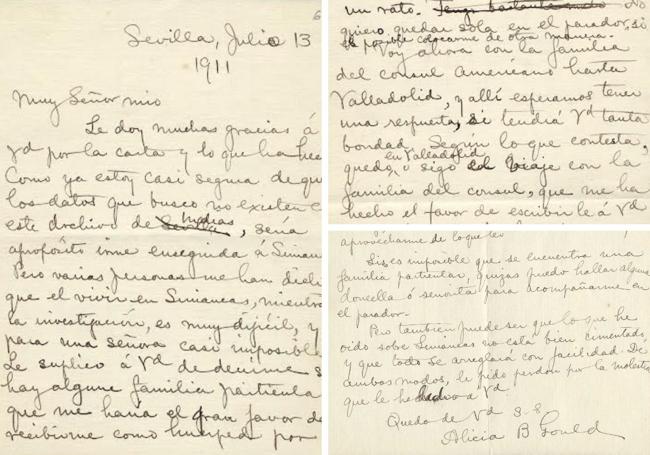 6
Sevilla, Julio 13
1911
Muy Señor mio
Le doy muchas gracias á
Vd por la carta y lo que ha hec
Como ya estoy casi segura de qu
los datos que busco no existen e
este Archivo de Sevilla Indias, sería
apropósito irme enseguida á Siman
Pero varias personas me han dich
que el vivir en Simancas, mientra
la investigación, es muy difícil, y
para una señora casi imposible
Le suplico á Vd de decirme s
hay alguna familia particula
que me haría el gran favor de
recibirme como huesped por
un rato. Tengo bastante No
quiero quedar sola en el parador, si
es posible colocarme de otra manera.
Voy ahora con la familia
del consul Americano hasta
Valladolid, y allí esperamos tener
una respuesta, si tendrá Vd tanta
bordad. Según lo que contesta,
quedo en Valladolid, ó sigo el viaje con la
familia del consul, que me ha
hecho el favor de escribirle á Vd
aprovecharme de lo que
Si es imposible que se encuentra una
familia particular, quizas puedo hallar alguna
doncella ó señorita para acompañarme en
el parador.
Pero tambien puede ser que lo que he
oido sobre Simancas no está bien cimentado
y que todo se arreglará con facilidad. De
ambos modos, le pido perdon por la molestia
que le he dado á Vd
Quedo de Vd S-S
Alicia B Gould